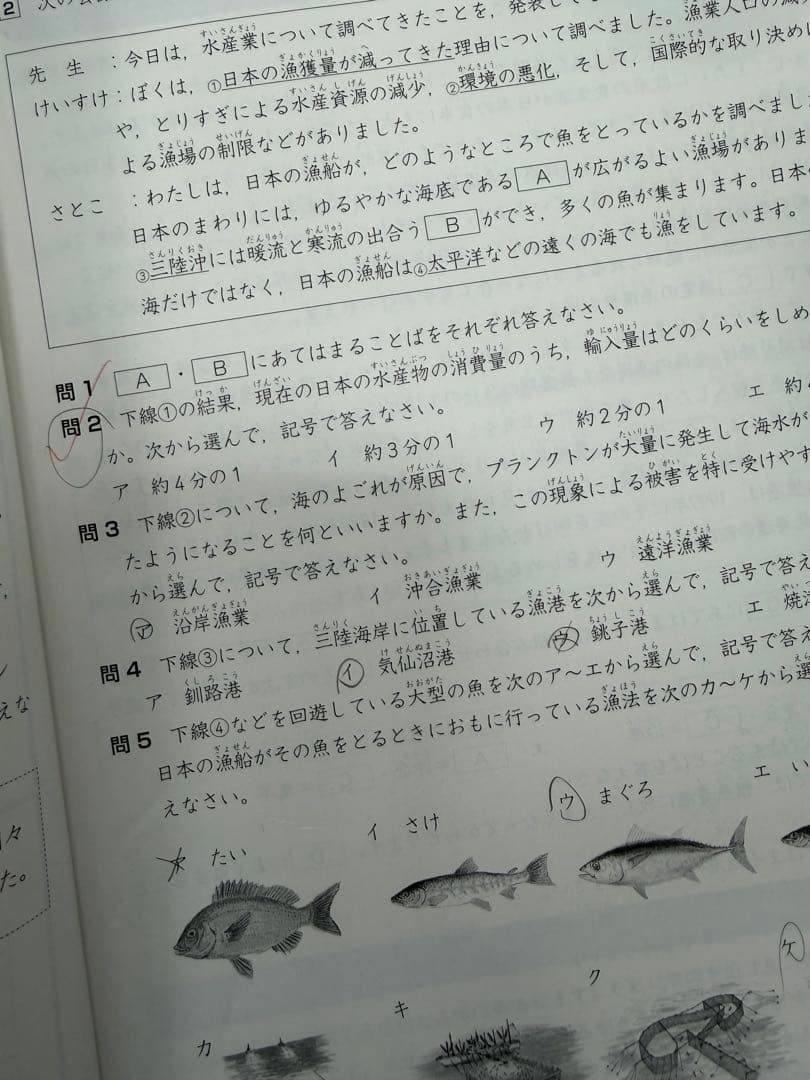 2 次の
先生：今日は，水産業について調べてきたことを，発表して
けいすけ：ぼくは，①日本の漁獲量が減ってきた理由について調べました。漁業人口の減
や，とりすぎによる水産資源の減少，②環境の悪化，そして，国際的な取り決め
よる漁場の制限などがありました。
さとこ：わたしは，日本の漁船が，どのようなところで魚をとっているかを調べまし
日本のまわりには，ゆるやかな海底である A が広がるよい漁場がありま
③三陸沖には暖流と寒流の出合う B ができ，多くの魚が集まります。日本
海だけではなく，日本の漁船は④太平洋などの遠くの海でも漁をしています。
問1 A・B にあてはまることばをそれぞれ答えなさい。
問2 下線①の結果，現在の日本の水産物の消費量のうち，輸入量はどのくらいをしめ
か。次から選んで，記号で答えなさい。
ア 約4分の1 イ 約3分の1 ウ 約2分の1 エ 約
問3 下線②について，海のよごれが原因で，プランクトンが大量に発生して海水が
たようになることを何といいますか。また，この現象による被害を特に受けやす
から選んで，記号で答えなさい。
ア 沿岸漁業 イ 沖合漁業 ウ 遠洋漁業
問4 下線③について，三陸海岸に位置している漁港を次から選んで，記号で答え
ア 釧路港 イ 気仙沼港 ウ 銚子港 エ 焼
問5 下線④などを回遊している大型の魚を次のア〜エから選んで，記号で答え
日本の漁船がその魚をとるときにおもに行っている漁法を次のカ〜ケから選
えなさい。
たい イ さけ ウ まぐろ エ い
カ キ ク ケ